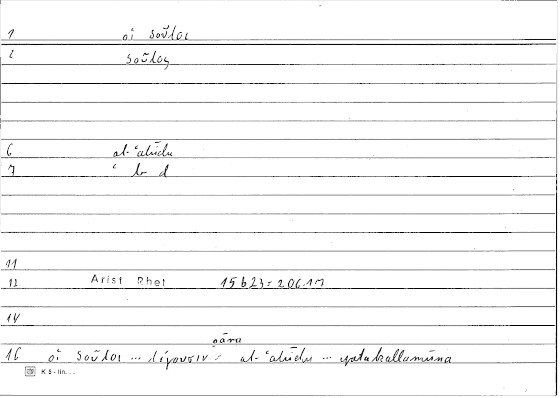 1 οἱ δοῦλοι
2 δοῦλος
6 al-ʿabīdu
7 ʿ b d
11
12 Arist Rhet 15b23 = 206.17
14
ṣāra
16 οἱ δοῦλοι ... λέγουσιν = al-ʿabīdu ... yatakallamūna
K 5-lin...